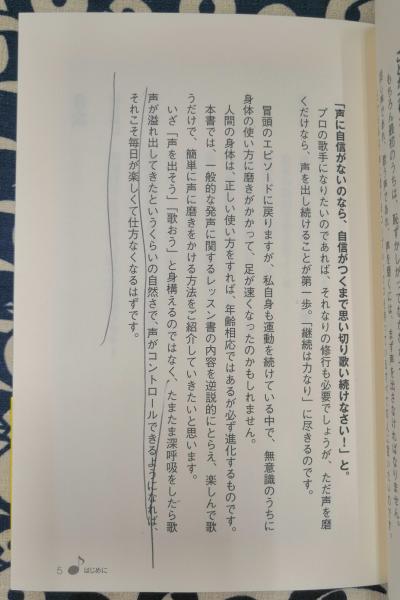 「声に自信がないのなら、自信がつくまで思い切り歌い続けなさい！」と。
プロの歌手になりたいのであれば、それなりの修行も必要でしょうが、ただ声を磨
くだけなら、声を出し続けることが第一歩。「継続は力なり」に尽きるのです。
冒頭のエピソードに戻りますが、私自身も運動を続けている中で、無意識のうちに
身体の使い方に磨きがかかって、足が速くなったのかもしれません。
人間の身体は、正しい使い方をすれば、年齢相応ではあるが必ず進化するものです。
本書では、一般的な発声に関するレッスン書の内容を逆説的にとらえ、楽しんで歌
うだけで、簡単に声に磨きをかける方法をご紹介していきたいと思います。
いざ「声を出そう」「歌おう」と身構えるのではなく、たまたま深呼吸をしたら歌
声が溢れ出してきたというくらいの自然さで、声がコントロールできるようになれば、
それこそ毎日が楽しくて仕方なくなるはずです。
5 はじめに